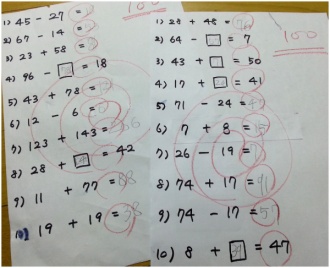 100
1) 45 - 27 =
2) 67 - 14 =
3) 23 + 58 =
4) 96 - □ = 18
5) 43 + 78 =
6) 12 - 6 =
7) 123 + 143 = 266
8) 28 + □ = 42
9) 11 + 77 = 88
10) 19 + 19 = 38
100
1) 28 + 48 = 76
2) 64 - □ = 7
3) 43 + □ = 50
4) 17 + □ = 41
5) 71 - 24 =
6) 7 + 8 = 15
7) 26 - 19 = 7
8) 74 + 17 = 91
9) 74 - 17 = 57
10) 8 + □ = 47